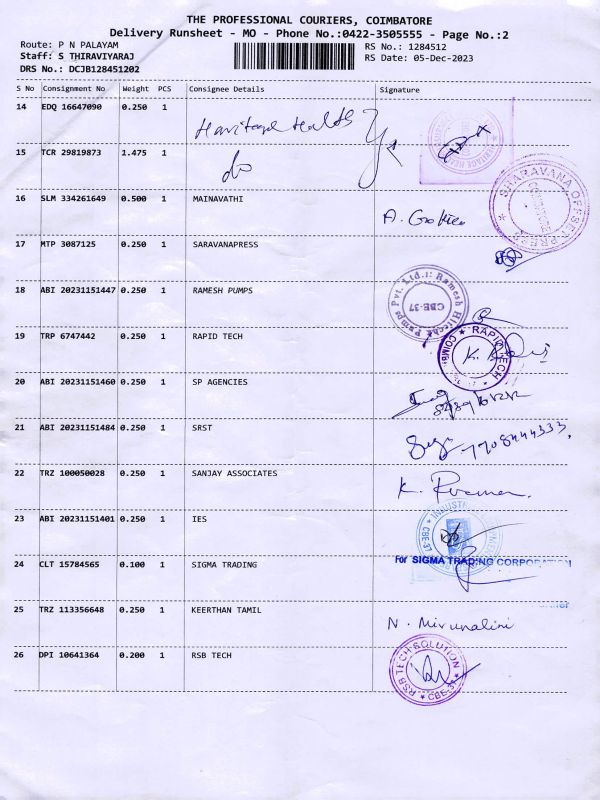 THE PROFESSIONAL COURIERS, COIMBATORE
Delivery Runsheet - MO - Phone No.:0422-3505555 - Page No.:2
Route: P N PALAYAM RS No.: 1284512
Staff: S THIRAVIYARAJ RS Date: 05-Dec-2023
DRS No.: DCJB128451202
S No Consignment No Weight PCS Consignee Details Signature
14 EDQ 16647090 0.250 1 Heritage Health
15 TCR 29819873 1.475 1 do
16 SLM 334261649 0.500 1 MAINAVATHI
SHARAVANA OFFSET PRESS
17 MTP 3087125 0.250 1 SARAVANAPRESS
18 ABI 20231151447 0.250 1 RAMESH PUMPS
Ramesh Hitech Pumps Pvt. Ltd.: CBE-37
19 TRP 6747442 0.250 1 RAPID TECH
RAPID TECH
20 ABI 20231151460 0.250 1 SP AGENCIES
21 ABI 20231151484 0.250 1 SRST
7708444333,
22 TRZ 100050028 0.250 1 SANJAY ASSOCIATES
K.
23 ABI 20231151401 0.250 1 IES
CBE-37
24 CLT 15784565 0.100 1 SIGMA TRADING
For SIGMA TRADING CORPORATION
25 TRZ 113356648 0.250 1 KEERTHAN TAMIL
N. Mirunalini
26 DPI 10641364 0.200 1 RSB TECH
RSB TECH SOLUTION CBE-37